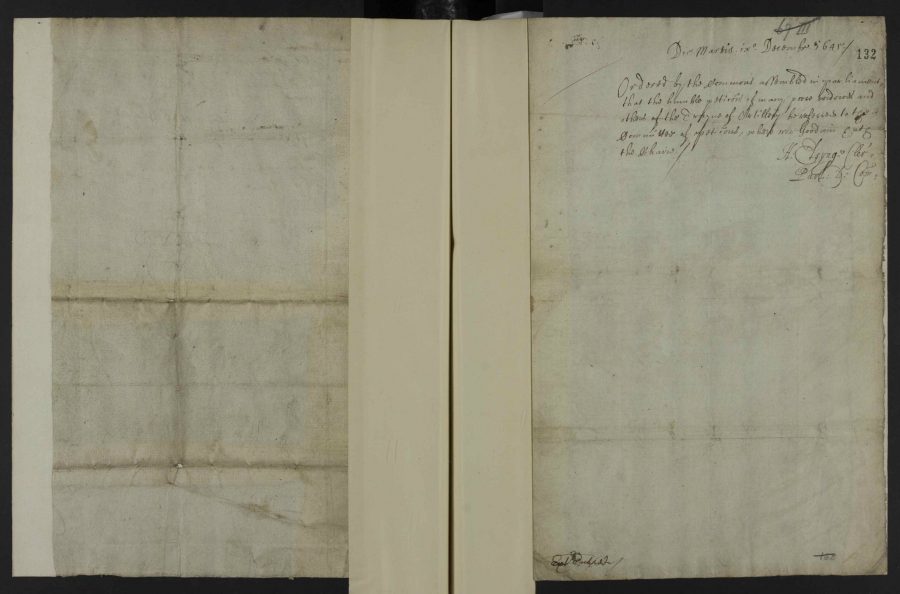 132
Die Martis ix° Decembr 1645 /
Ordered by the Commons assembled in parliament
that the humble peticon of many poore widowes and
others of the Trayne of Artillery be referred to the
Committee of peticons, where mr Goodwin
the Chaire /
H: Elsynge Cler:
Parl: D: Com: